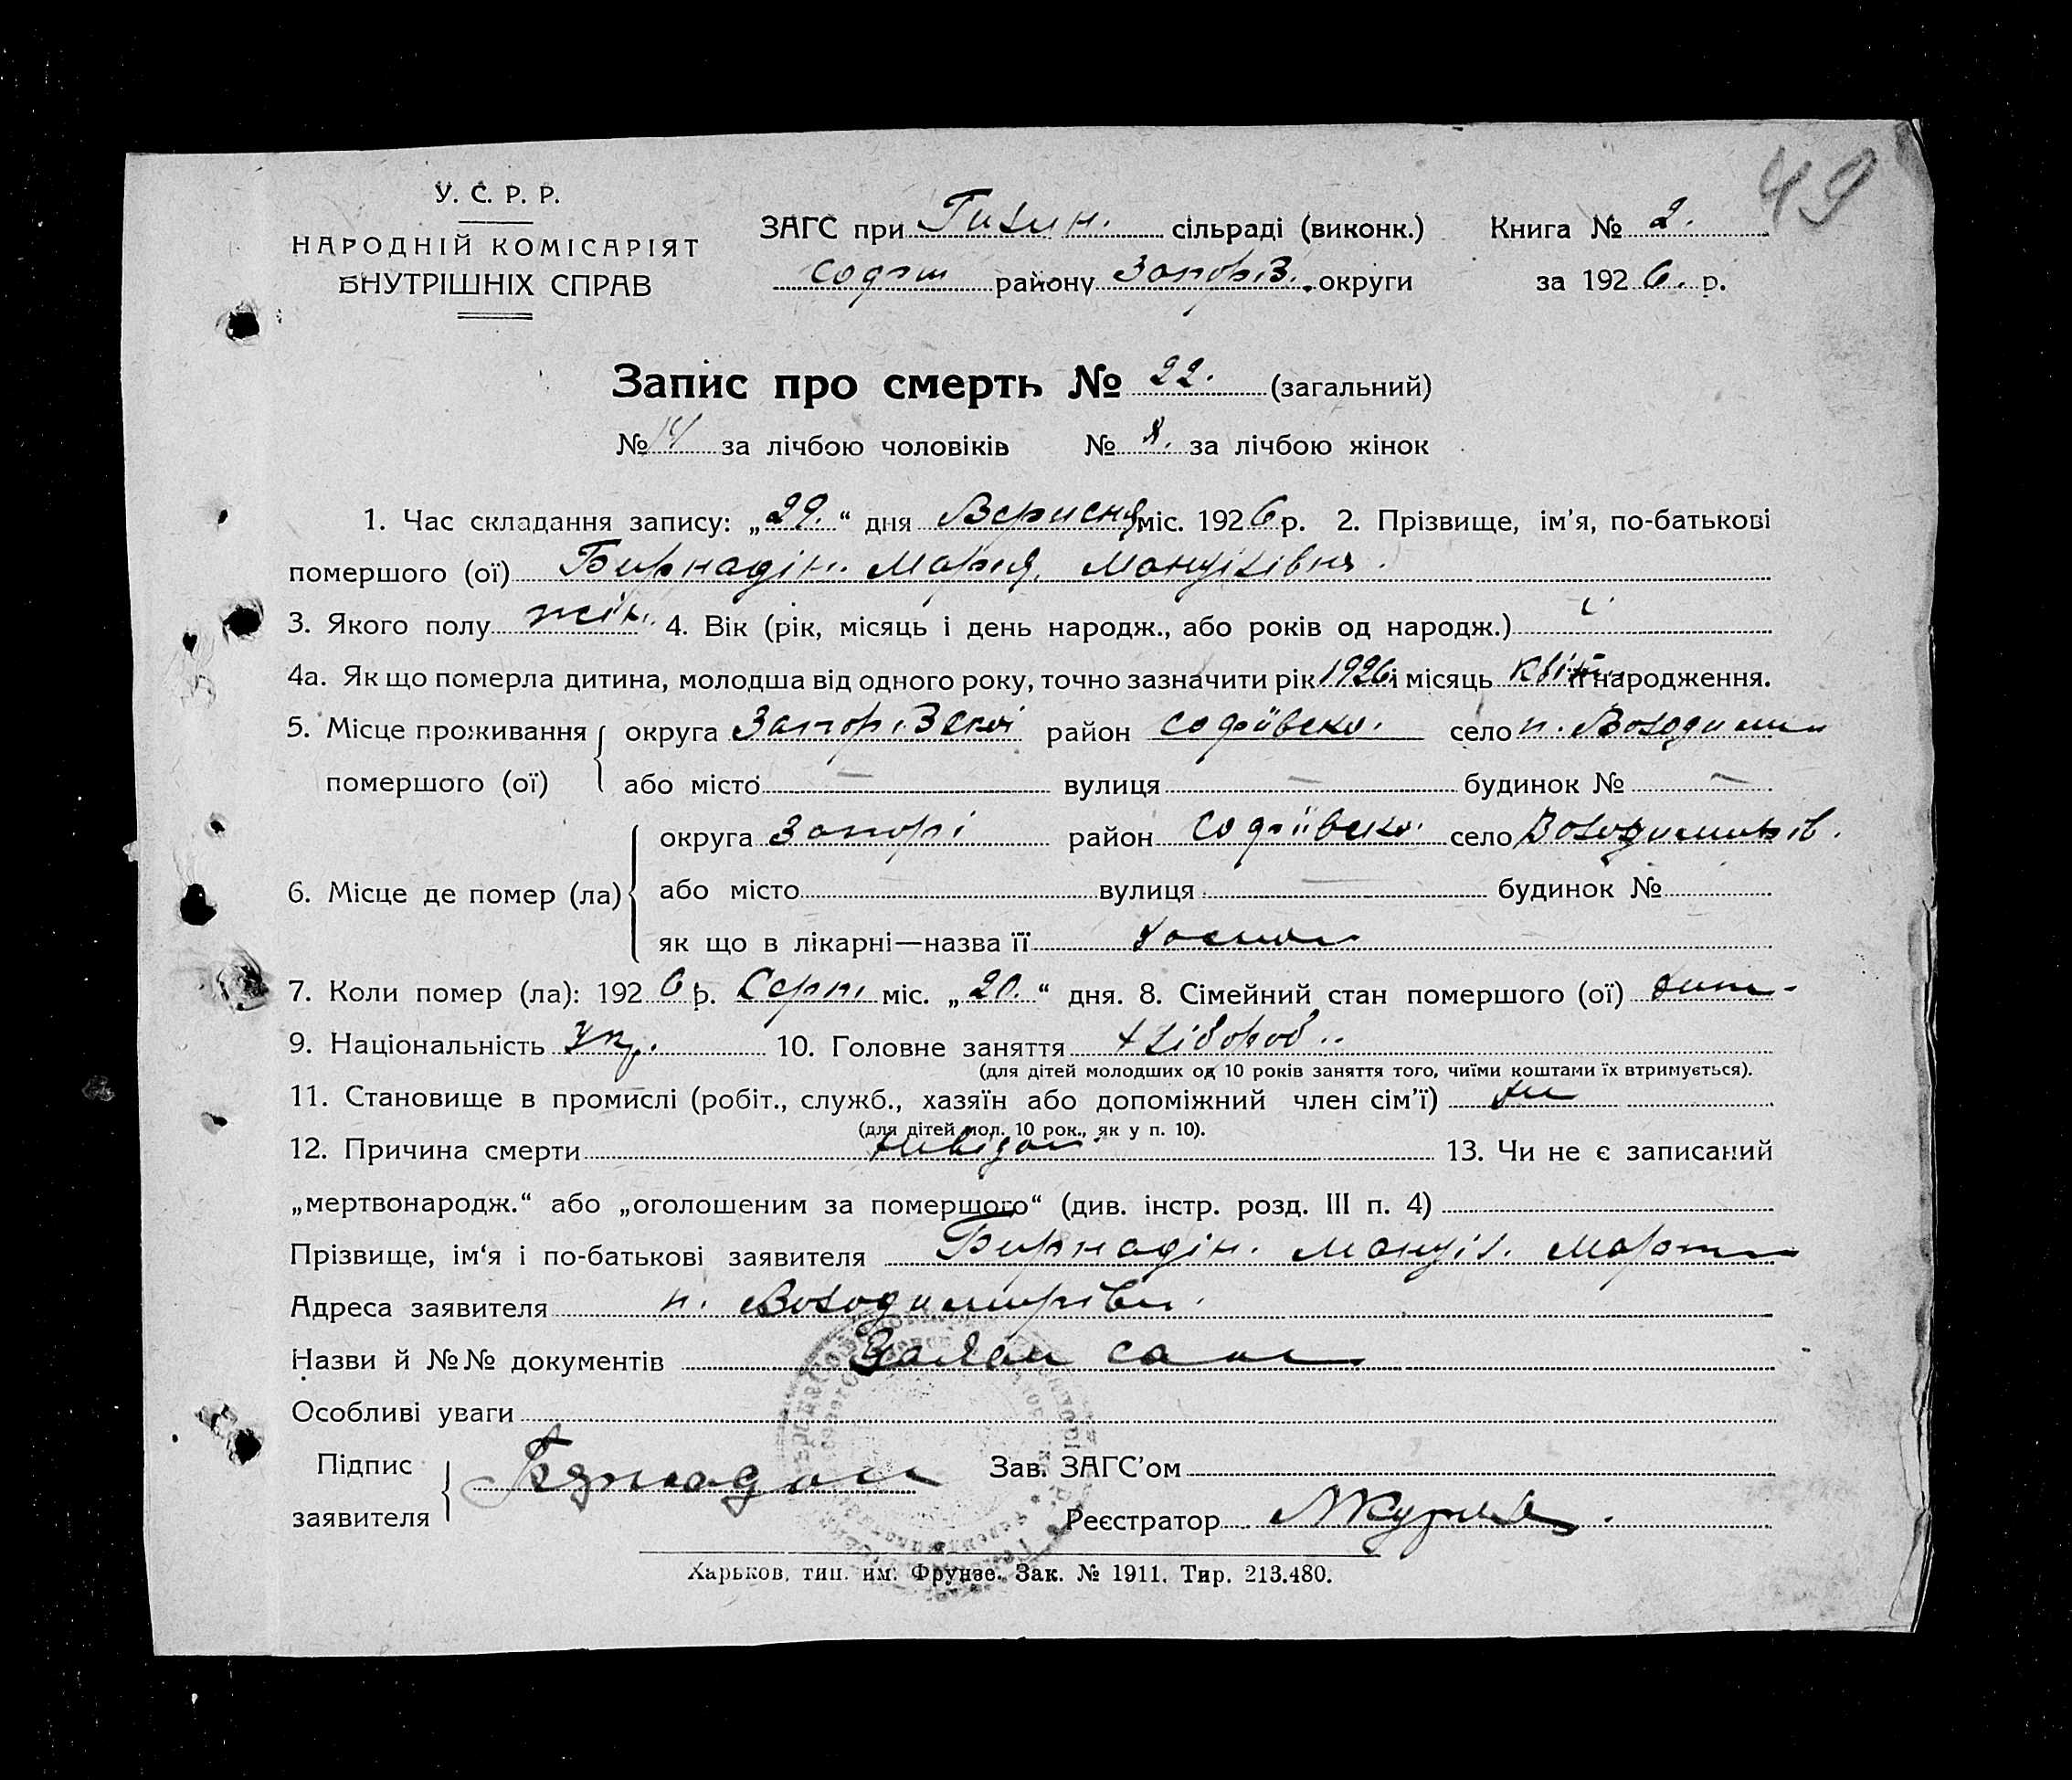 49
У. С. Р. Р.
НАРОДНІЙ КОМІСАРІЯТ
ВНУТРІШНІХ СПРАВ
ЗАГС при сільраді (виконк.) Книга № 2.
району Запоріз. округи за 1926. р.
Запис про смерть № 22. (загальний)
№ 14 за лічбою чоловіків № 8. за лічбою жінок
1. Час складання запису: „29.“ дня Вересня міс. 1926 р. 2. Прізвище, ім'я, по-батькові
помершого (ої) Бирнадін. Мария. Мануілівна.
3. Якого полу жін. 4. Вік (рік, місяць і день народж., або років од народж.)
4а. Як що померла дитина, молодша від одного року, точно зазначити рік 1926 і місяць квітн її народження.
5. Місце проживання помершого (ої) округа Запорізскої район софіївско. село п. Володими
або місто — вулиця — будинок № —
6. Місце де помер (ла) округа Запорі район Софіївско. село Володимирів.
або місто вулиця — будинок №
як що в лікарні—назва її
7. Коли помер (ла): 1926 р. Серп. міс. „20.“ дня. 8. Сімейний стан помершого (ої)
9. Національність Укр. 10. Головне заняття хлібороб..
(для дітей молодших од 10 років заняття того, чиїми коштами їх втримується).
11. Становище в промислі (робіт., служб., хазяїн або допоміжний член сім'ї)
(для дітей мол. 10 рок., як у п. 10).
12. Причина смерти невідом. 13. Чи не є записаний
„мертвонародж.“ або „оголошеним за помершого“ (див. інстр. розд. III п. 4)
Прізвище, ім‘я і по-батькові заявителя Бирнадін. Мануіл. Март
Адреса заявителя п. Володимирівк.
Назви й №№ документів
Особливі уваги
Підпис заявителя Зав. ЗАГС'ом
Реєстратор
Харьков, тип. им. Фрунзе. Зак. № 1911. Тир. 213.480.